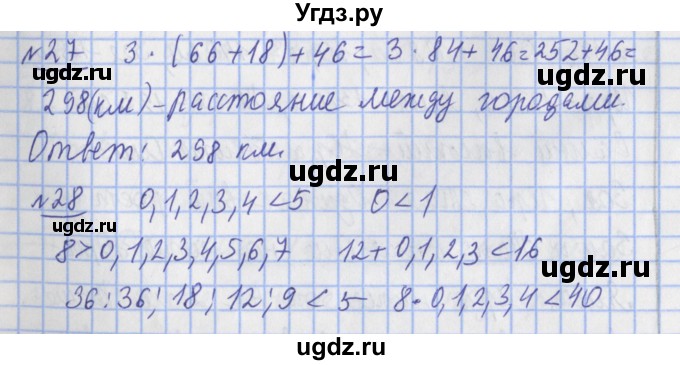 Угдз.ру
№27 3 · (66+18)+46= 3 · 84+46=252+46=
298(км)-расстояние между городами.
Ответ: 298 км.
№28 0,1,2,3,4<5 0<1
8>0,1,2,3,4,5,6,7 12+0,1,2,3<16
36:36; 18; 12; 9<5 8·0,1,2,3,4<40
ugdz.ru
ugdz.ru
ugdz.ru
ugdz.ru
ugdz.ru
ugdz.ru
ugdz.ru
Угдз.ру